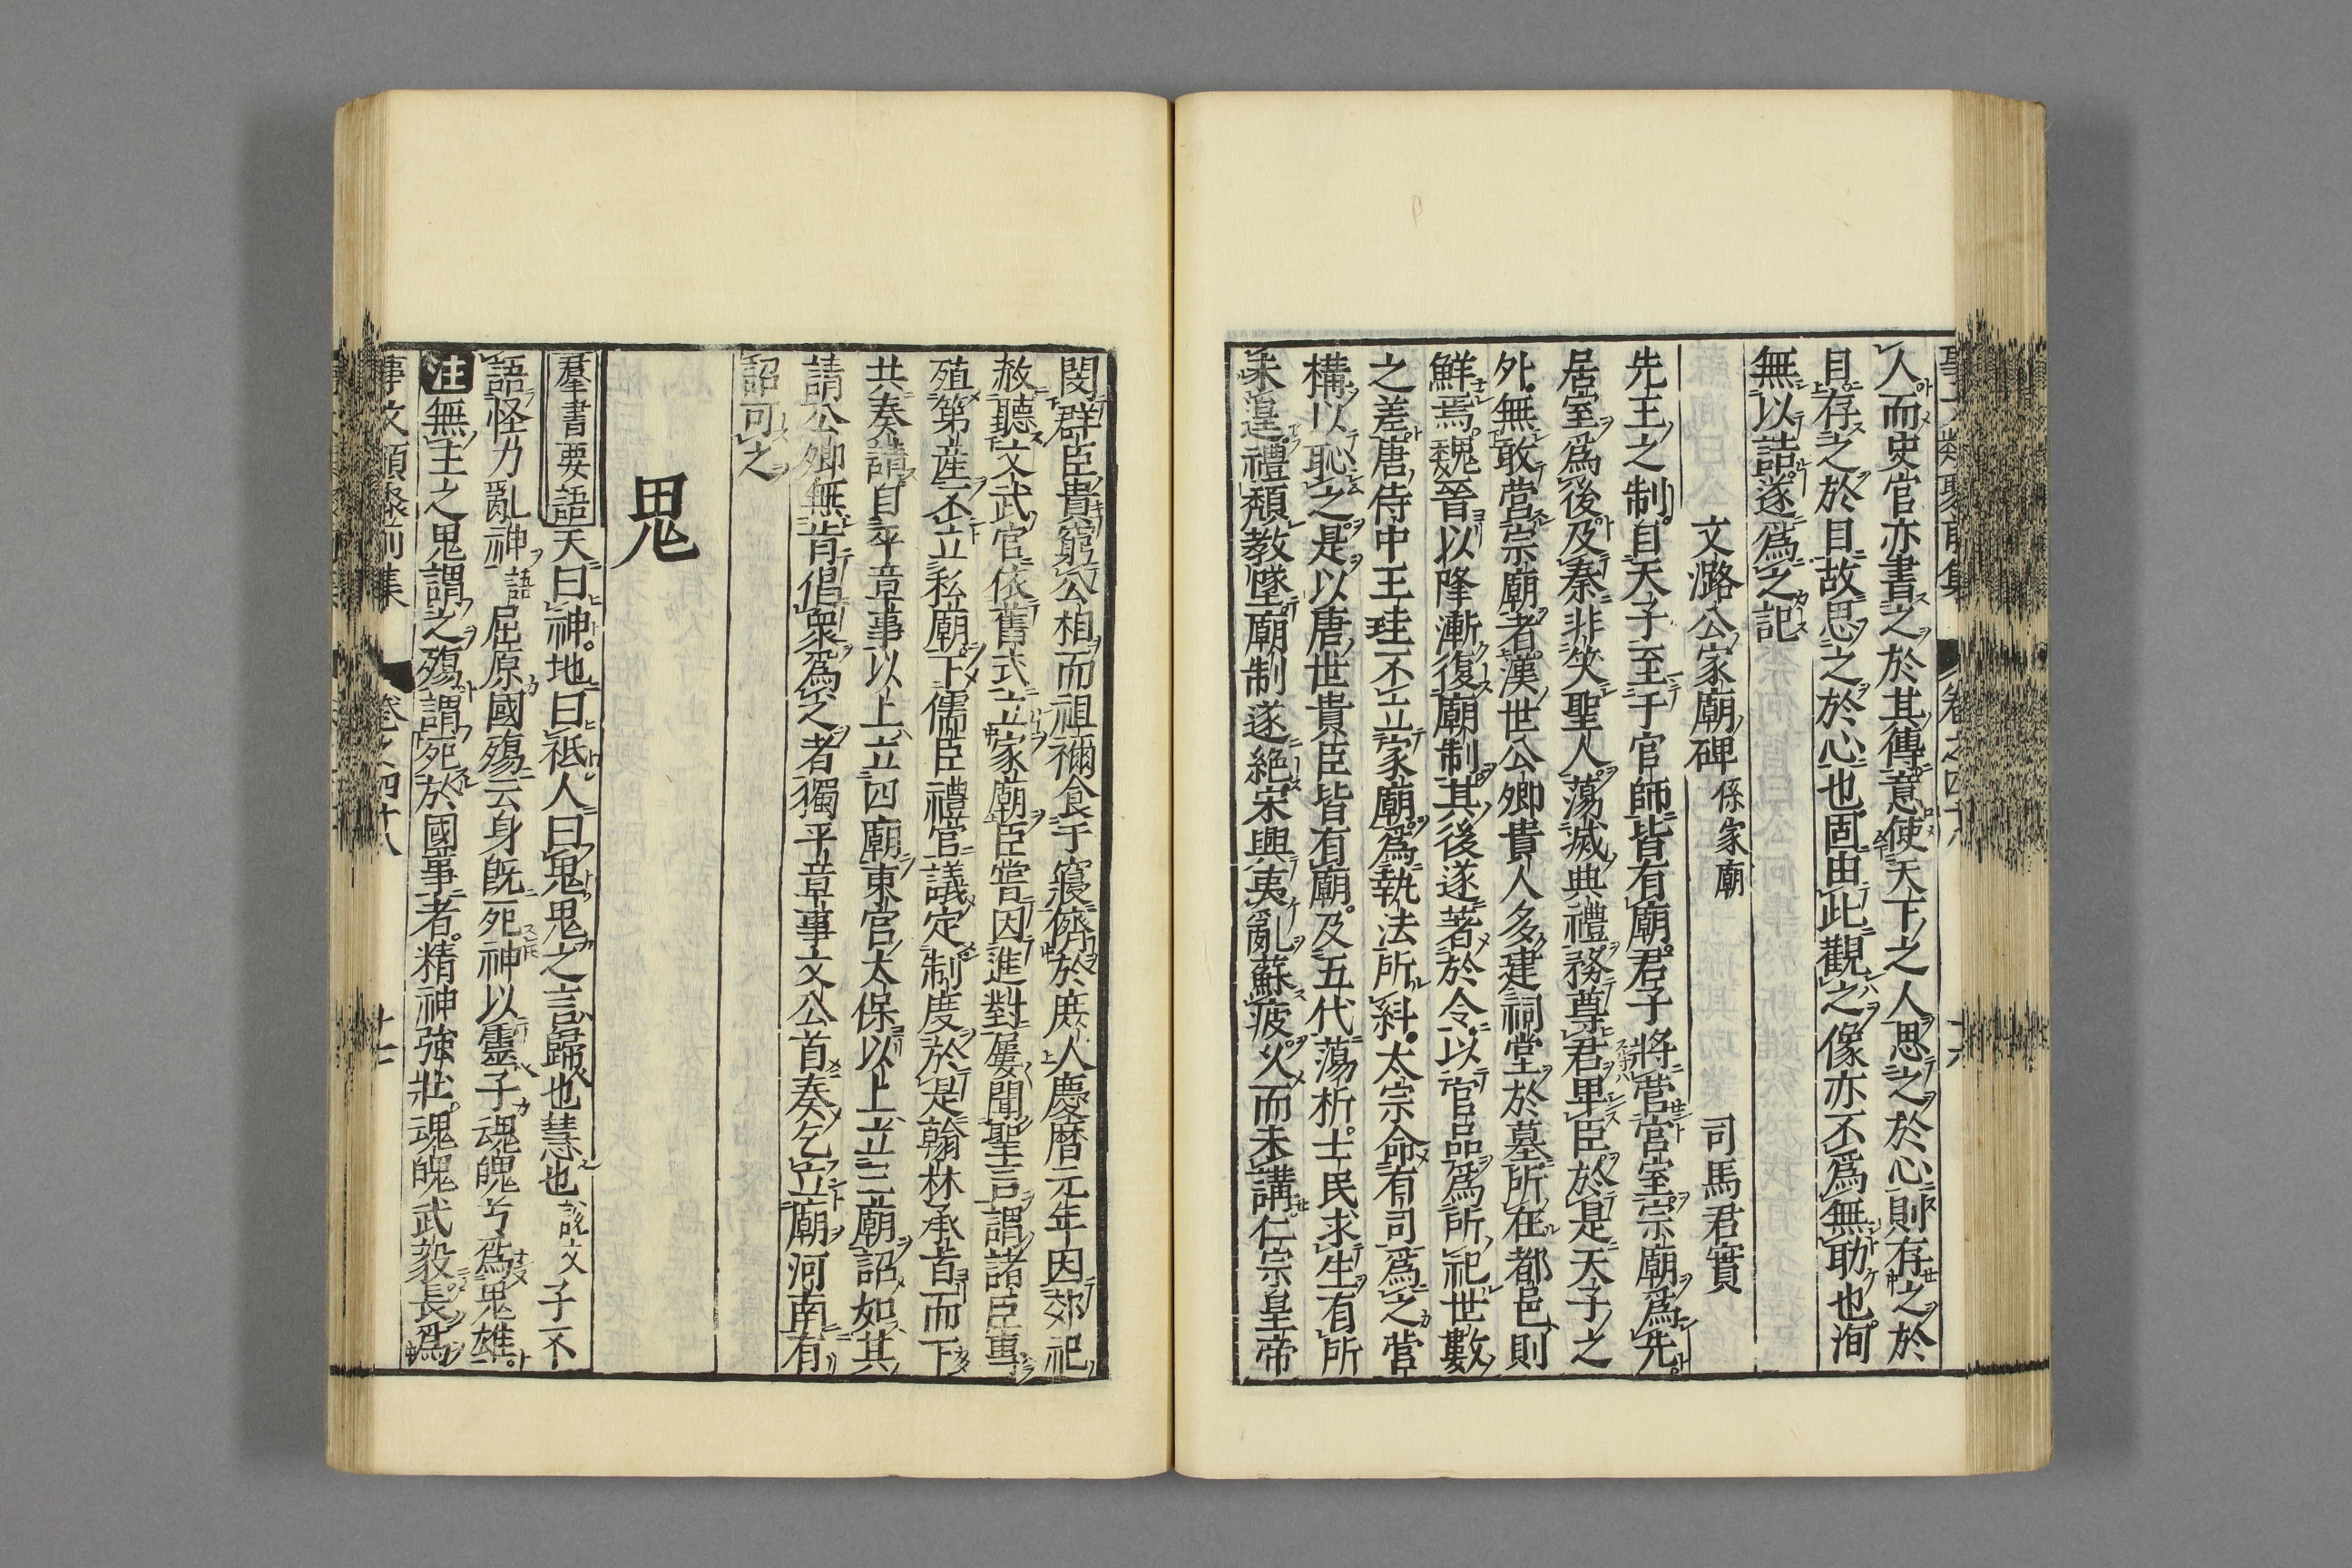 人而史官亦書之於其傳意使天下之人思之於心則存之於
目存之於目故思之於心也固由此觀之像亦不爲無助也洵
無以詰遂爲之記
文潞公家廟碑 係家廟 司馬君實
先王之制自天子至于官師皆有廟君子將營宮室宗廟爲先
居室爲後及秦非笑聖人蕩滅典禮務尊君卑臣於是天子之
外無敢營宗廟者漢世公卿貴人多建祠堂於墓所在都邑則
鮮焉魏晉以降漸復廟制其後遂著於令以官品爲所祀世數
之差唐侍中王珪不立家廟爲執法所糾太宗命有司爲之營
構以恥之是以唐世貴臣皆有廟及五代蕩析士民求生有所
未遑禮頹教墜廟制遂絕宋興夷亂蘇疲久而未講仁宗皇帝
閔群臣貴窮公相而祖禰食于寢儕於庶人慶曆元年因郊祀
赦聽文武官依舊式立家廟臣嘗因進對屢聞聖言謂諸臣專
殖第產不立私廟下儒臣禮官議定制度於是翰林承旨而下
共奏請自平章事以上立四廟東官太保以上立三廟詔如其
請公卿無肯倡眾爲之者獨平章事文公首奏乞立廟河南有
詔可之
鬼
羣書要語 天曰神地曰祗人曰鬼鬼之言歸也慧也 說文 子不
語怪力亂神 語 屈原國殤云身既死神以靈子魂魄兮爲鬼雄
注 無主之鬼謂之殤謂死於國事者精神強壯魂魄武毅長爲
事文類聚前集 卷之四十八 十七